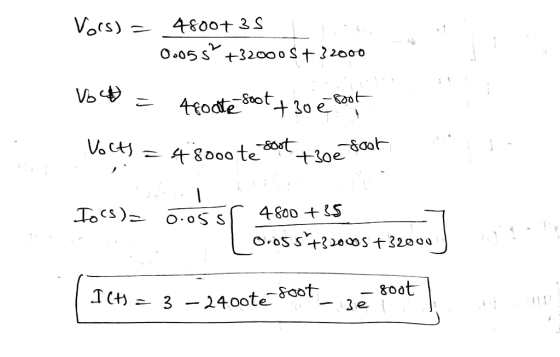 Vo(s) = 4800 + 3S / 0.05 s² + 32000 S + 32000
Vo = te^-800t + 30 e^-800t
Vo(t) = 48000 te^-800t + 30e^-800t
Io(s) = 1 / 0.05 S [ 4800 + 3S / 0.05 s² + 32000s + 32000 ]
I(t) = 3 - 2400te^-800t - 3e^-800t